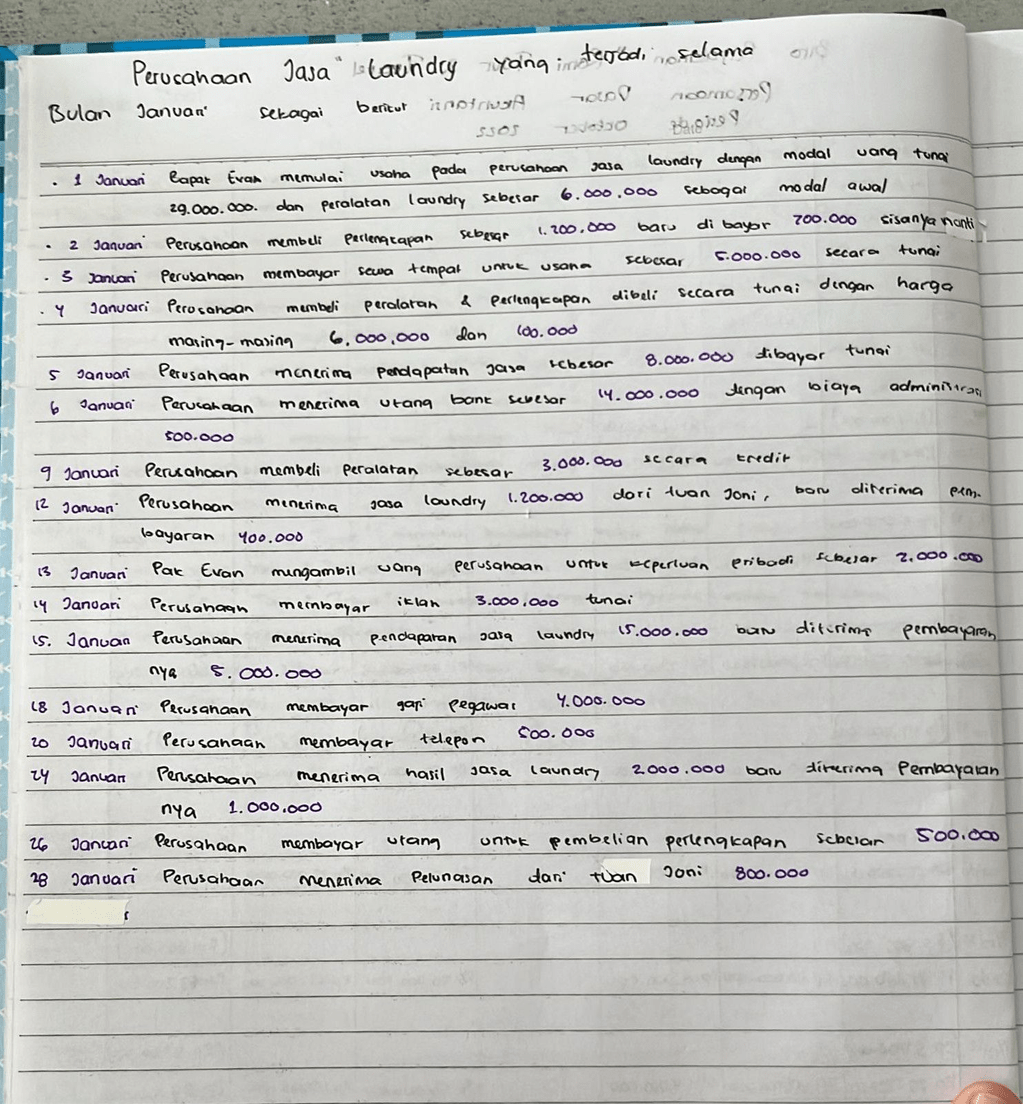 Perusahaan Jasa Laundry yang terjadi selama
Bulan Januari sebagai berikut
. 1 Januari Bapak Evan memulai usaha pada perusahaan jasa laundry dengan modal uang tunai
29.000.000. dan peralatan laundry sebesar 6.000.000 sebagai modal awal
. 2 Januari Perusahaan membeli perlengkapan sebesar 1.200.000 baru di bayar 700.000 sisanya nanti
. 3 Januari Perusahaan membayar sewa tempat untuk usaha sebesar 5.000.000 secara tunai
. 4 Januari Perusahaan membeli peralatan & perlengkapan dibeli secara tunai dengan harga
masing-masing 6.000.000 dan 100.000
5 Januari Perusahaan menerima pendapatan jasa sebesar 8.000.000 dibayar tunai
6 Januari Perusahaan menerima utang bank sebesar 14.000.000 dengan biaya administrasi
500.000
9 Januari Perusahaan membeli peralatan sebesar 3.000.000 secara kredit
12 Januari Perusahaan menerima jasa laundry 1.200.000 dari tuan Joni, baru diterima pem-
bayaran 400.000
13 Januari Pak Evan mengambil uang perusahaan untuk keperluan pribadi sebesar 2.000.000
14 Januari Perusahaan membayar iklan 3.000.000 tunai
15. Januari Perusahaan menerima pendapatan jasa laundry 15.000.000 baru diterima pembayaran
nya 5.000.000
18 Januari Perusahaan membayar gaji pegawai 4.000.000
20 Januari Perusahaan membayar telepon 500.000
24 Januari Perusahaan menerima hasil jasa laundry 2.000.000 baru diterima Pembayaran
nya 1.000.000
26 Januari Perusahaan membayar utang untuk pembelian perlengkapan sebesar 500.000
28 Januari Perusahaan menerima Pelunasan dari tuan Joni 800.000